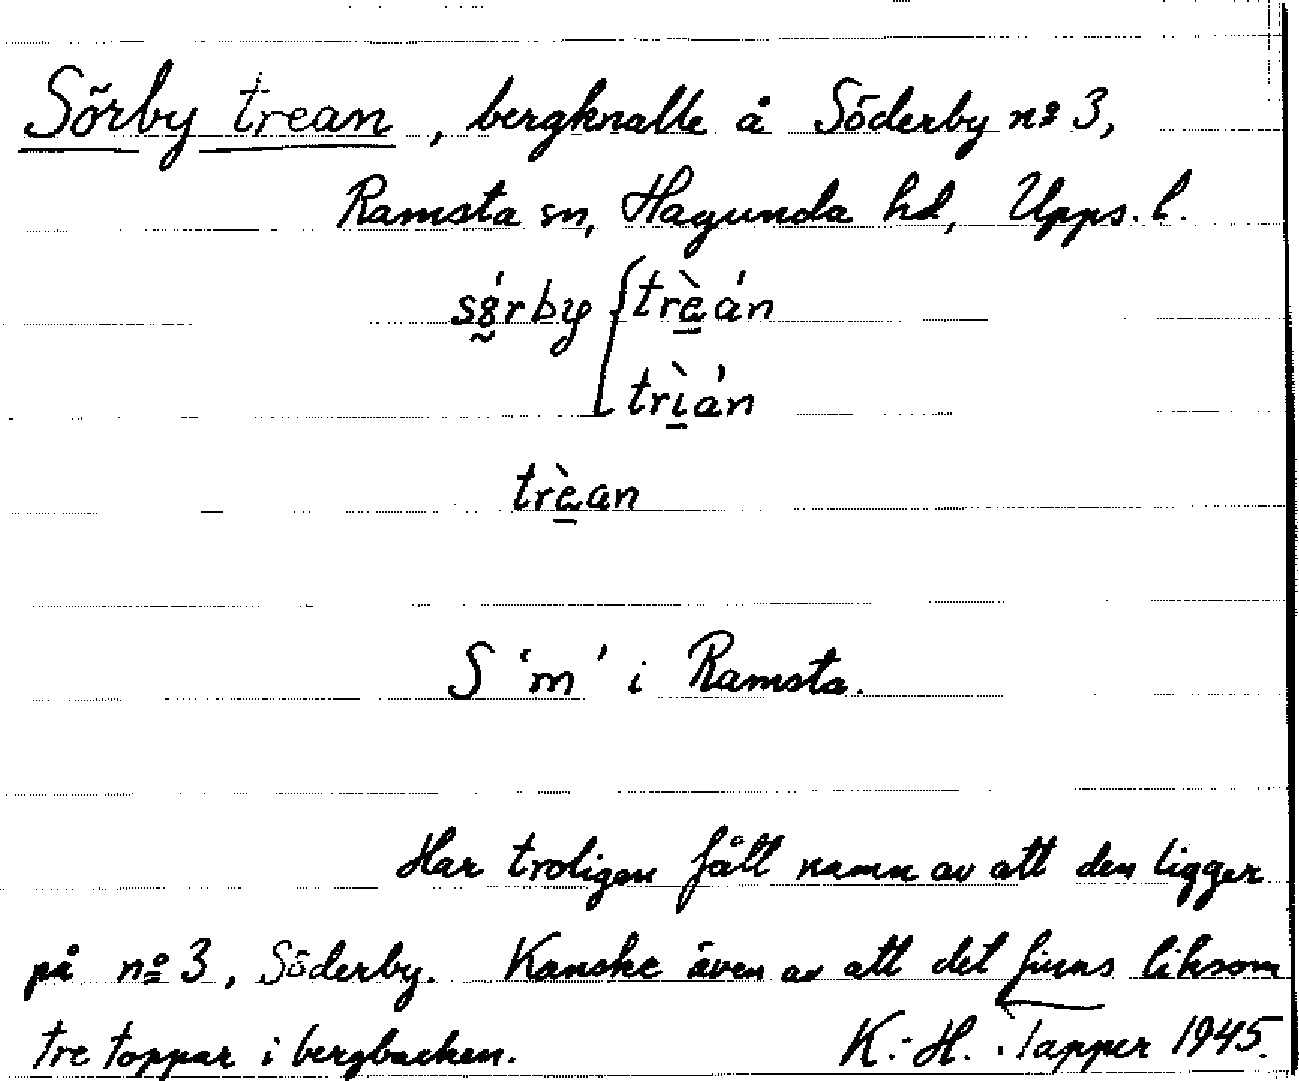 Sörby trean, bergknalle å Söderby nº 3,
Ramsta sn, Hagunda hd, Upps. l.
sǿrby { trè̱án
trì̱án
trè̱an
S 'm' i Ramsta.
Har troligen fått namn av att den ligger
på nº 3, Söderby. Kanske även av att det finns liksom
tre toppar i bergbacken. K.-H. Tapper 1945.